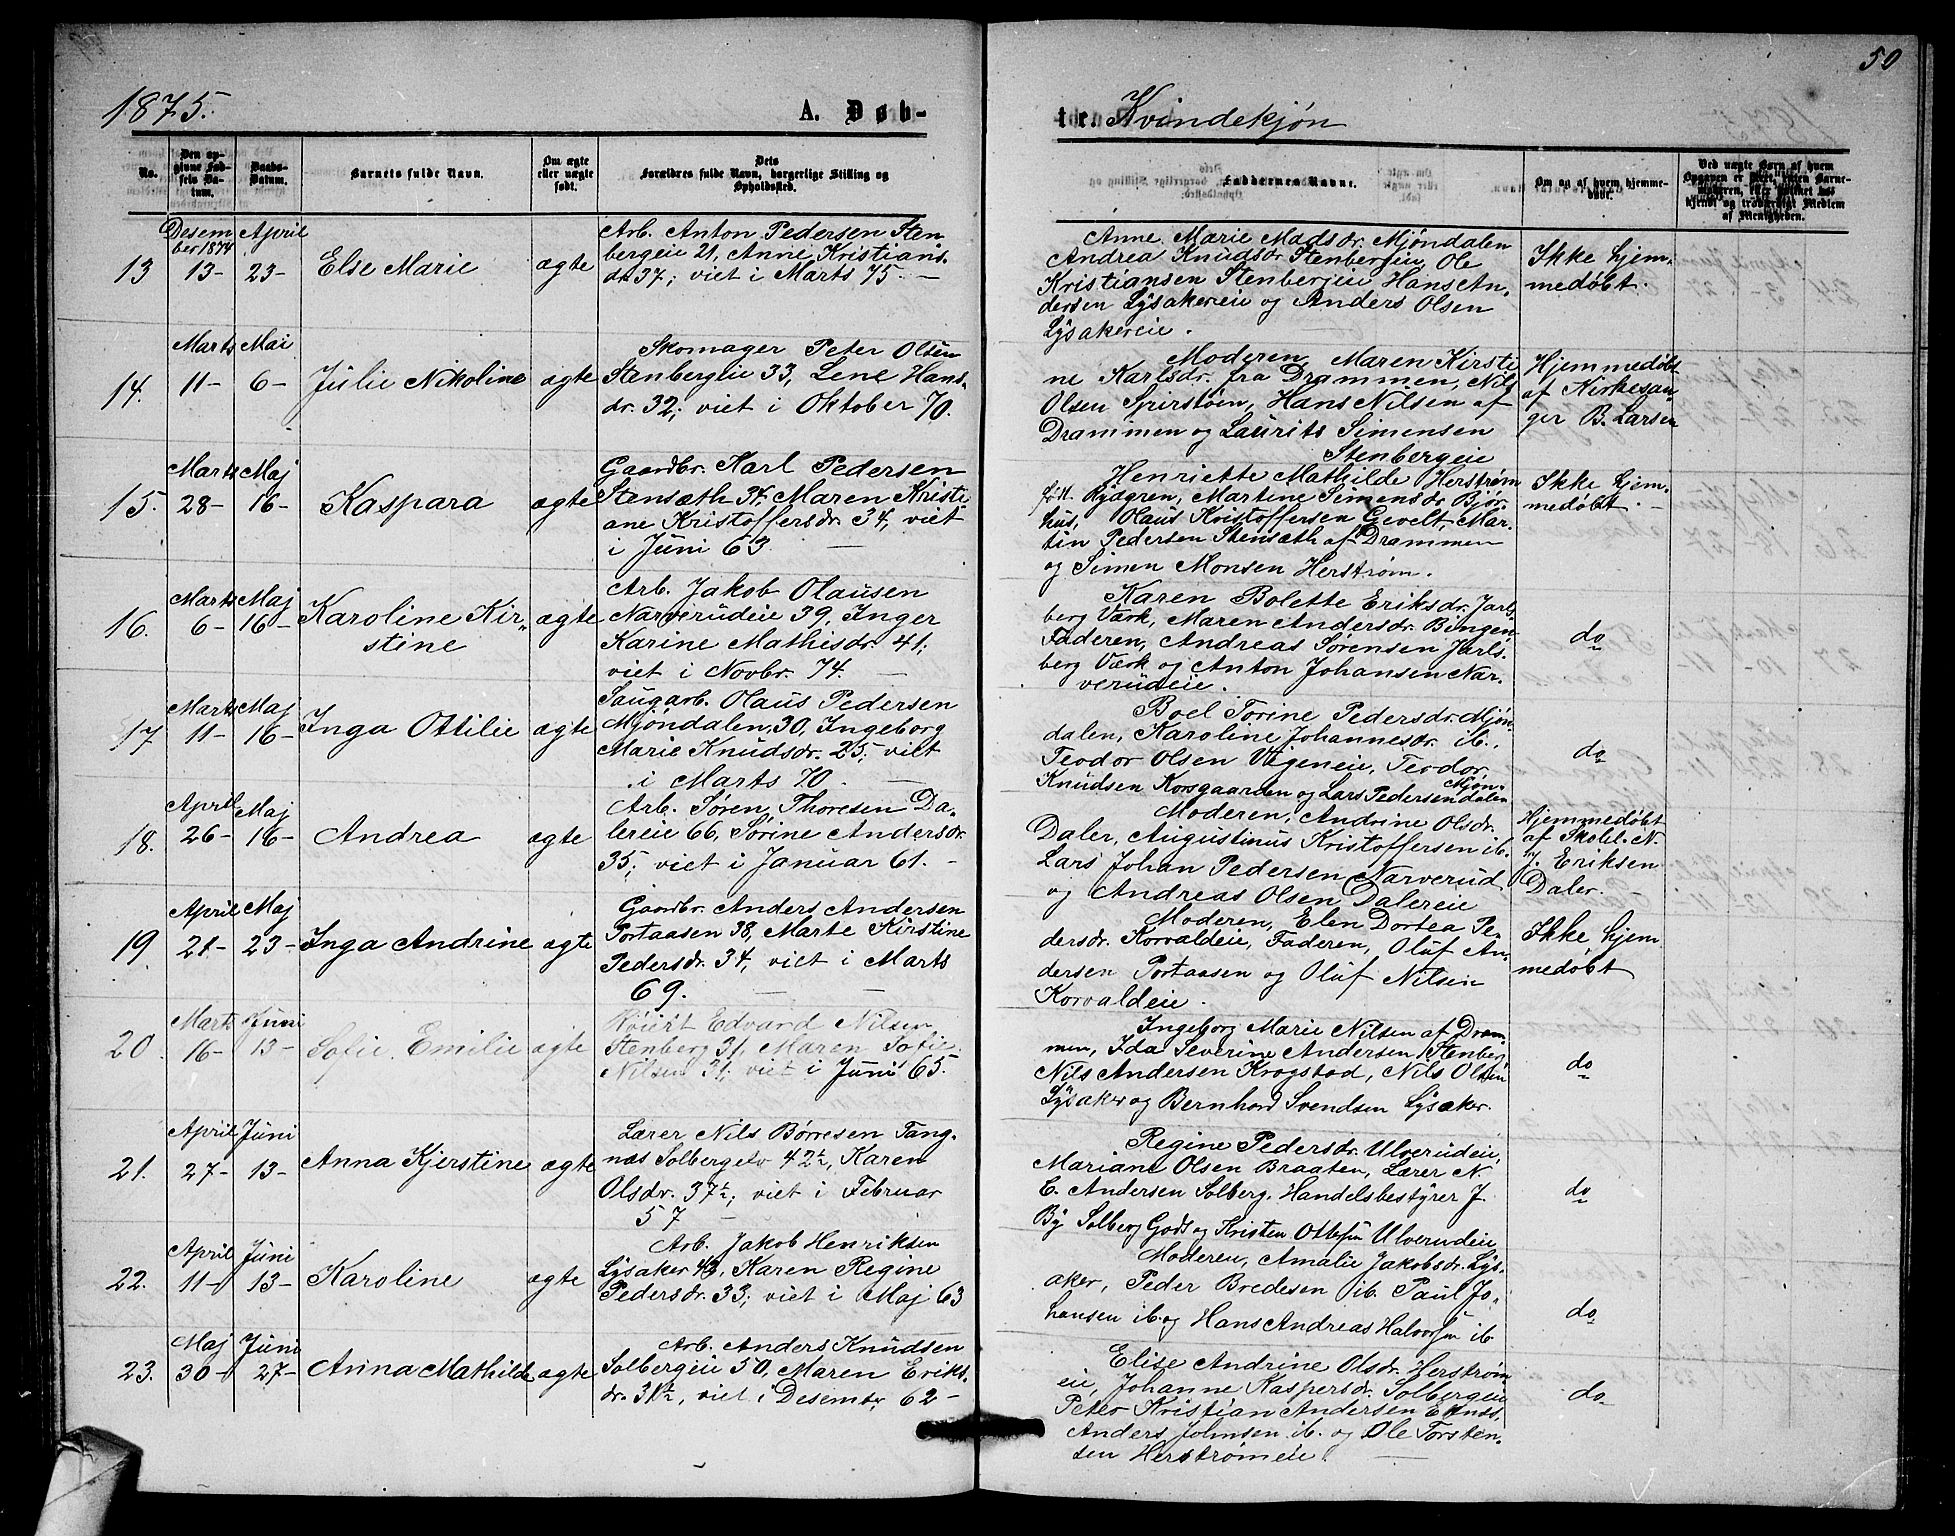 50
1875.
A. Døb-
te. Kvindekjøn
No.
Den op-
givne Fød-
sels Da-
tum.
Daabs-
Datum.
Barnets fulde Navn.
Om ægte
eller uægte
født.
Dets
Forældres fulde Navn, borgerlige Stilling og
Opholdssted.
Faddernes Navne.
Om og af hvem hjemme-
døbt.
Ved uægte Barn af hvem
Opgaven er skeet, enten Barne-
moderen, eller Følket hos
kjendt og troværdigt Medlem
af Menigheden.
13
Desem
ber 1874
13-
April
23-
Else Marie
ægte
Arb. Anton Pedersen Sten
bergeie 21, Anne Kristians
dr. 37; viet i Marts 75. -
Anne Marie Madsdr. Mjøndalen
Andrea Knudsdr. Stenbergeie, Ole
Kristiansen Stenbergeie Hans An-
dersen Lysakereie og Anders Olsen
Lysakereie.
Ikke hjem-
medøbt.
14.
Marts
11-
Mai
6-
Julie Nikoline
ægte
Skomager Peter Olsen
Stenbergeie 33, Lene Hans-
dr. 32; viet i Oktober 70.
Moderen, Maren Kirsti
ne Karlsdr. fra Drammen, Nils
Olsen Spirstøen, Hans Nilsen af
Drammen og Laurits Simensen
Stenbergeie
Hjemmedøbt
af Kirkesan-
ger B. Larsen
15.
Marts
28-
Maj
16-
Kaspara
ægte
Gaardbr. Karl Pedersen
Stensæth 34, Maren Kristi
ane Kristoffersdr. 34, viet
i Juni 63. -
Henriette Mathilde Herstrøm
f. Rydgren, Martine Simensdr. Bjør-
hus, Olaus Kristoffersen Gevelt, Mar-
tin Pedersen Stensæth af Drammen
og Simen Monsen Herstrøm.
Ikke hjem-
medøbt. -
16.
Marts
6-
Maj
16-
Karoline Kir-
stine
ægte
Arb. Jakob Olausen
Narverudeie 39, Inger
Karine Mathisdr. 41;
viet i Novbr. 74. -
Karen Bolette Eriksdr. Jarls
berg Værk, Maren Andersdr. Bingen
Faderen, Andreas Sørensen Jarls-
berg Værk og Anton Johansen Nar-
verudeie.
do
17
Marts
11-
Maj
16-
Inga Ottilie
ægte
Saugarb. Olaus Pedersen
Mjøndalen, 30, Ingeborg
Marie Knudsdr. 25; viet
i Marts 70. -
Boel Torine Pedersdr. Mjøn-
dalen, Karoline Johannesdr. ib.,
Teodor Olsen Vegeneie, Teodor
Knudsen Korsgaarden og Lars Pedersen Mjøn-
dalen
do
18.
April
26-
Maj
16-
Andrea
ægte
Arb. Søren Thoresen Da-
lereie 66, Sørine Andersdr.
35; viet i Januar 61. -
Moderen, Andrine Olsdr.
Daler, Augustinus Kristoffersen ib.
Lars Johan Pedersen Narverud
og Andreas Olsen Dalereie
Hjemmedøbt
af Skoll. N.
J. Eriksen
Daler. -
19.
April
21-
Maj
23-
Inga Andrine
ægte
Gaardbr. Anders Andersen
Portaasen 38, Marte Kirstine
Pedersdr. 34, viet i Marts
69. - -
Moderen, Elen Dortea Pe-
dersdr. Korvaldeie, Faderen, Oluf An-
dersen Portaasen og Oluf Nilsen
Korvaldeie.
Ikke hjem
medøbt
20.
Marts
16-
Juni
13-
Sofie Emilie
ægte
Edvard Nilsen
Stenberg 31, Maren Sofie
Nilsen 31; viet i Juni 65.
Ingeborg Marie Nilsen af Dram-
men, Ida Severine Andersen Stenberg
Nils Andersen Krogstad, Nils Olsen
Lysaker og Bernhard Svendsen Lysaker.
do
21.
April
27-
Juni
13-
Anna Kjerstine
ægte
Lærer Nils Børresen Tang-
nes Solberg 42½, Karen
Olsdr. 37½; viet i Februar
57 -
Regine Pedersdr. Ulverudeie,
Mariane Olsen Braaten, Lærer N
C. Andersen Solberg. Handelsbestyrer J.
By Solberg Gods og Kristen Ottesen Ulverudeie
do
22.
April
11-
Juni
13-
Karoline
ægte
Arb. Jakob Henriksen
Lysaker 43, Karen Regine
Pedersdr. 33; viet i Maj 63
Moderen, Amalie Jakobsdr. Lys-
aker, Peder Bredesen ib. Paul Jo-
hansen ib. og Hans Andreas Halvorsen ib
do
23.
Maj
30-
Juni
27-
Anna Mathilde
ægte
Arb. Anders Knudsen
Solbergeie 50, Maren Eriks-
dr. 31½, viet i Desembr. 62 -
Elise Andrine Olsdr. Herstrøm
eie, Johanne Kaspersdr. Solbergeie
Peter Kristian Andersen
Anders Johnsen ib. og Ole Torsten-
sen Herstrømeie. -
do